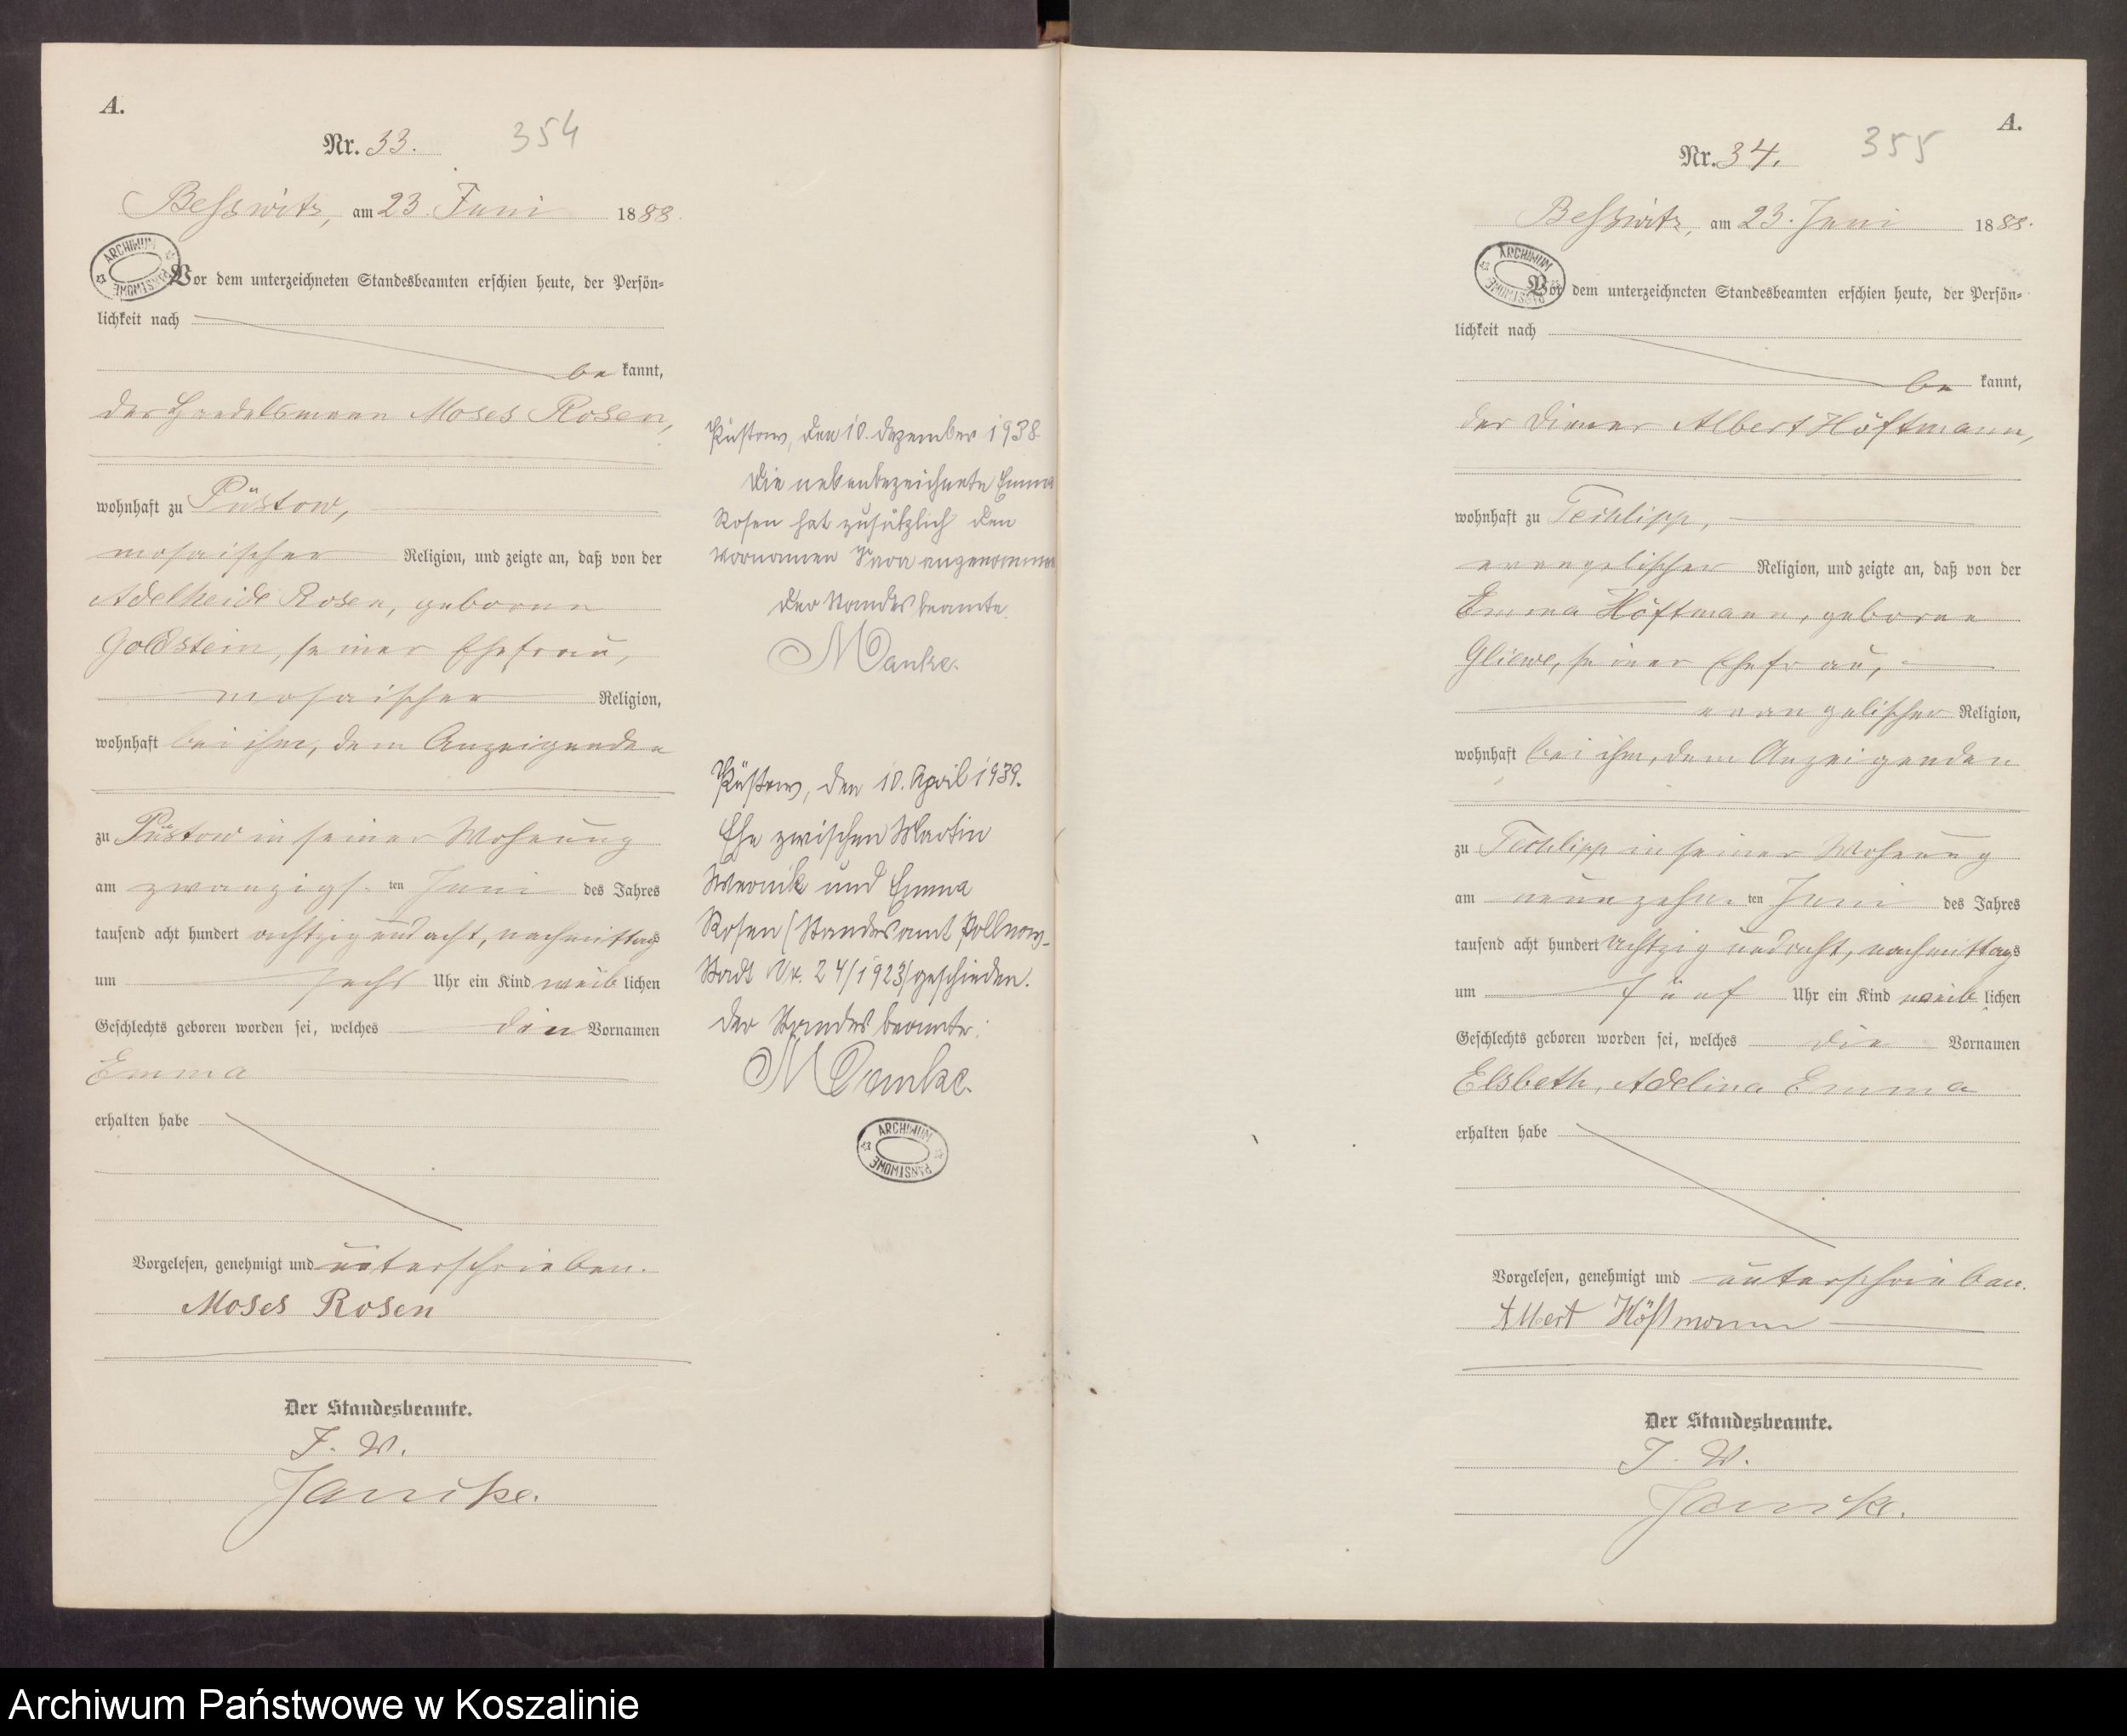 A.
Nr. 33.
354
Beßwitz, am 23. Juni 1888
ARCHIWUM PAŃSTWOWE
Vor dem unterzeichneten Standesbeamten erschien heute, der Persön-
lichkeit nach
be kannt,
der Handelsmann Moses Rosen,
wohnhaft zu Püstow,
mosaischer Religion, und zeigte an, daß von der
Adelheide Rosen, geborne
Goldstein, seiner Ehefrau,
mosaischer Religion,
wohnhaft bei ihm, dem Anzeigenden
zu Püstow in seiner Wohnung
am zwanzigs- ten Juni des Jahres
tausend acht hundert achtzig und acht, nachmittags
um sechs Uhr ein Kind weib lichen
Geschlechts geboren worden sei, welches den Vornamen
Emma
erhalten habe
Vorgelesen, genehmigt und unterschrieben.
Moses Rosen
Der Standesbeamte.
J. V.
Janike.
Püstow, den 10. Dezember 1938
Die nebenbezeichnete Emma
Rosen hat zusätzlich den
Vornamen Sara angenommen
Der Standesbeamte
Manke.
Püstow, den 10. April 1939.
Ehe zwischen Martin
Wernik und Emma
Rosen (Standesamt Pollnow-
Stadt Nr. 24/1923) geschieden.
Der Standesbeamte:
Manke.
ARCHIWUM PAŃSTWOWE
A.
Nr. 34.
355
Beßwitz, am 23. Juni 1888.
ARCHIWUM PAŃSTWOWE
Vor dem unterzeichneten Standesbeamten erschien heute, der Persön-
lichkeit nach
be kannt,
der Diener Albert Höftmann,
wohnhaft zu Techlipp,
evangelischer Religion, und zeigte an, daß von der
Emma Höftmann, geborne
Gliewe, seiner Ehefrau,
evangelischer Religion,
wohnhaft bei ihm, dem Anzeigenden
zu Techlipp in seiner Wohnung
am neunzehn- ten Juni des Jahres
tausend acht hundert achtzig und acht, nachmittags
um fünf Uhr ein Kind weib lichen
Geschlechts geboren worden sei, welches die Vornamen
Elsbeth, Adelina Emma
erhalten habe
Vorgelesen, genehmigt und unterschrieben.
Albert Höftmann
Der Standesbeamte.
J. V.
Janike.
Archiwum Państwowe w Koszalinie